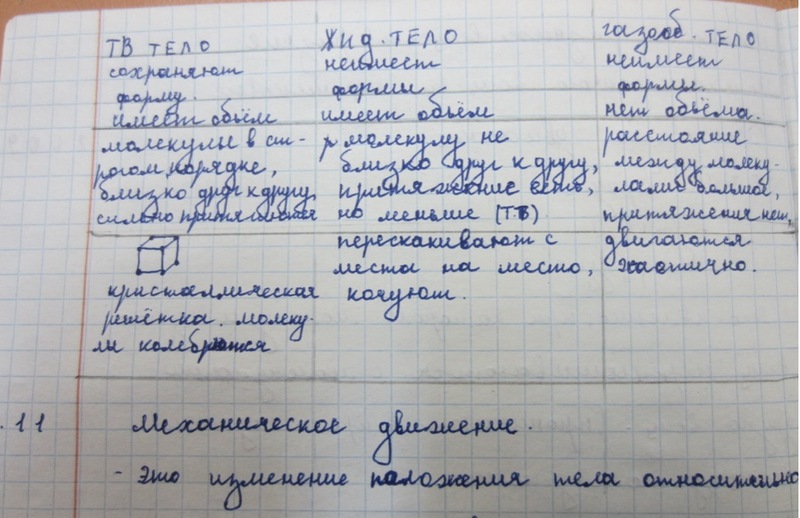 ТВ ТЕЛО
сохраняют
форму.
имеет объём
молекулы в ст-
рогом порядке,
близко друг к другу,
сильно притягиваются
кристаллическая
решётка. молеку-
лы колеблются
Жид. ТЕЛО
неимеет
формы
имеет объём
молекулу не
близко друг к другу,
притяжение есть,
но меньше (ТВ)
перескакивают с
места на место,
кочуют.
газооб. ТЕЛО
неимеет
формы.
нет объёма.
расстояние
между молеку-
лами большое,
притяжения нет,
двигаются
хаотично.
. 11 Механическое движение.
- Это изменение положения тела относительно